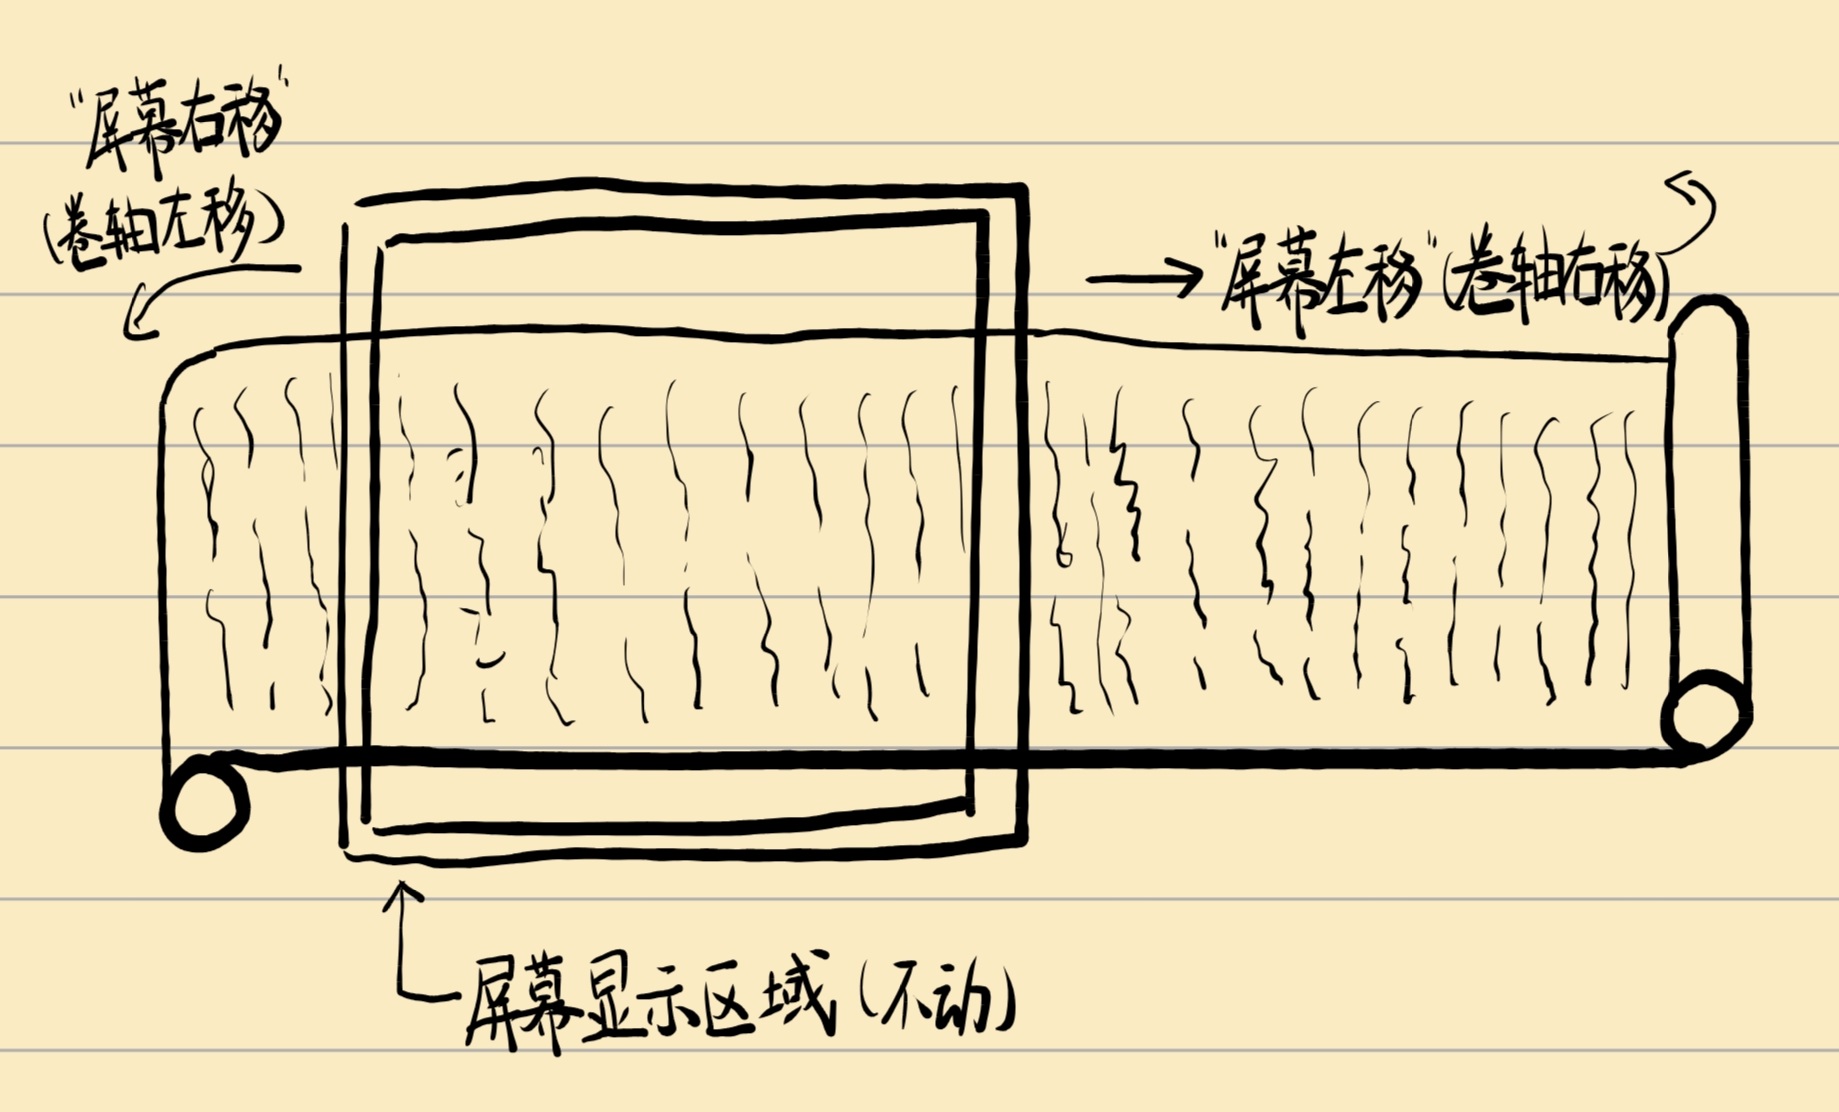 “屏幕右移”
(卷轴左移)
“屏幕左移”(卷轴右移)
屏幕显示区域(不动)